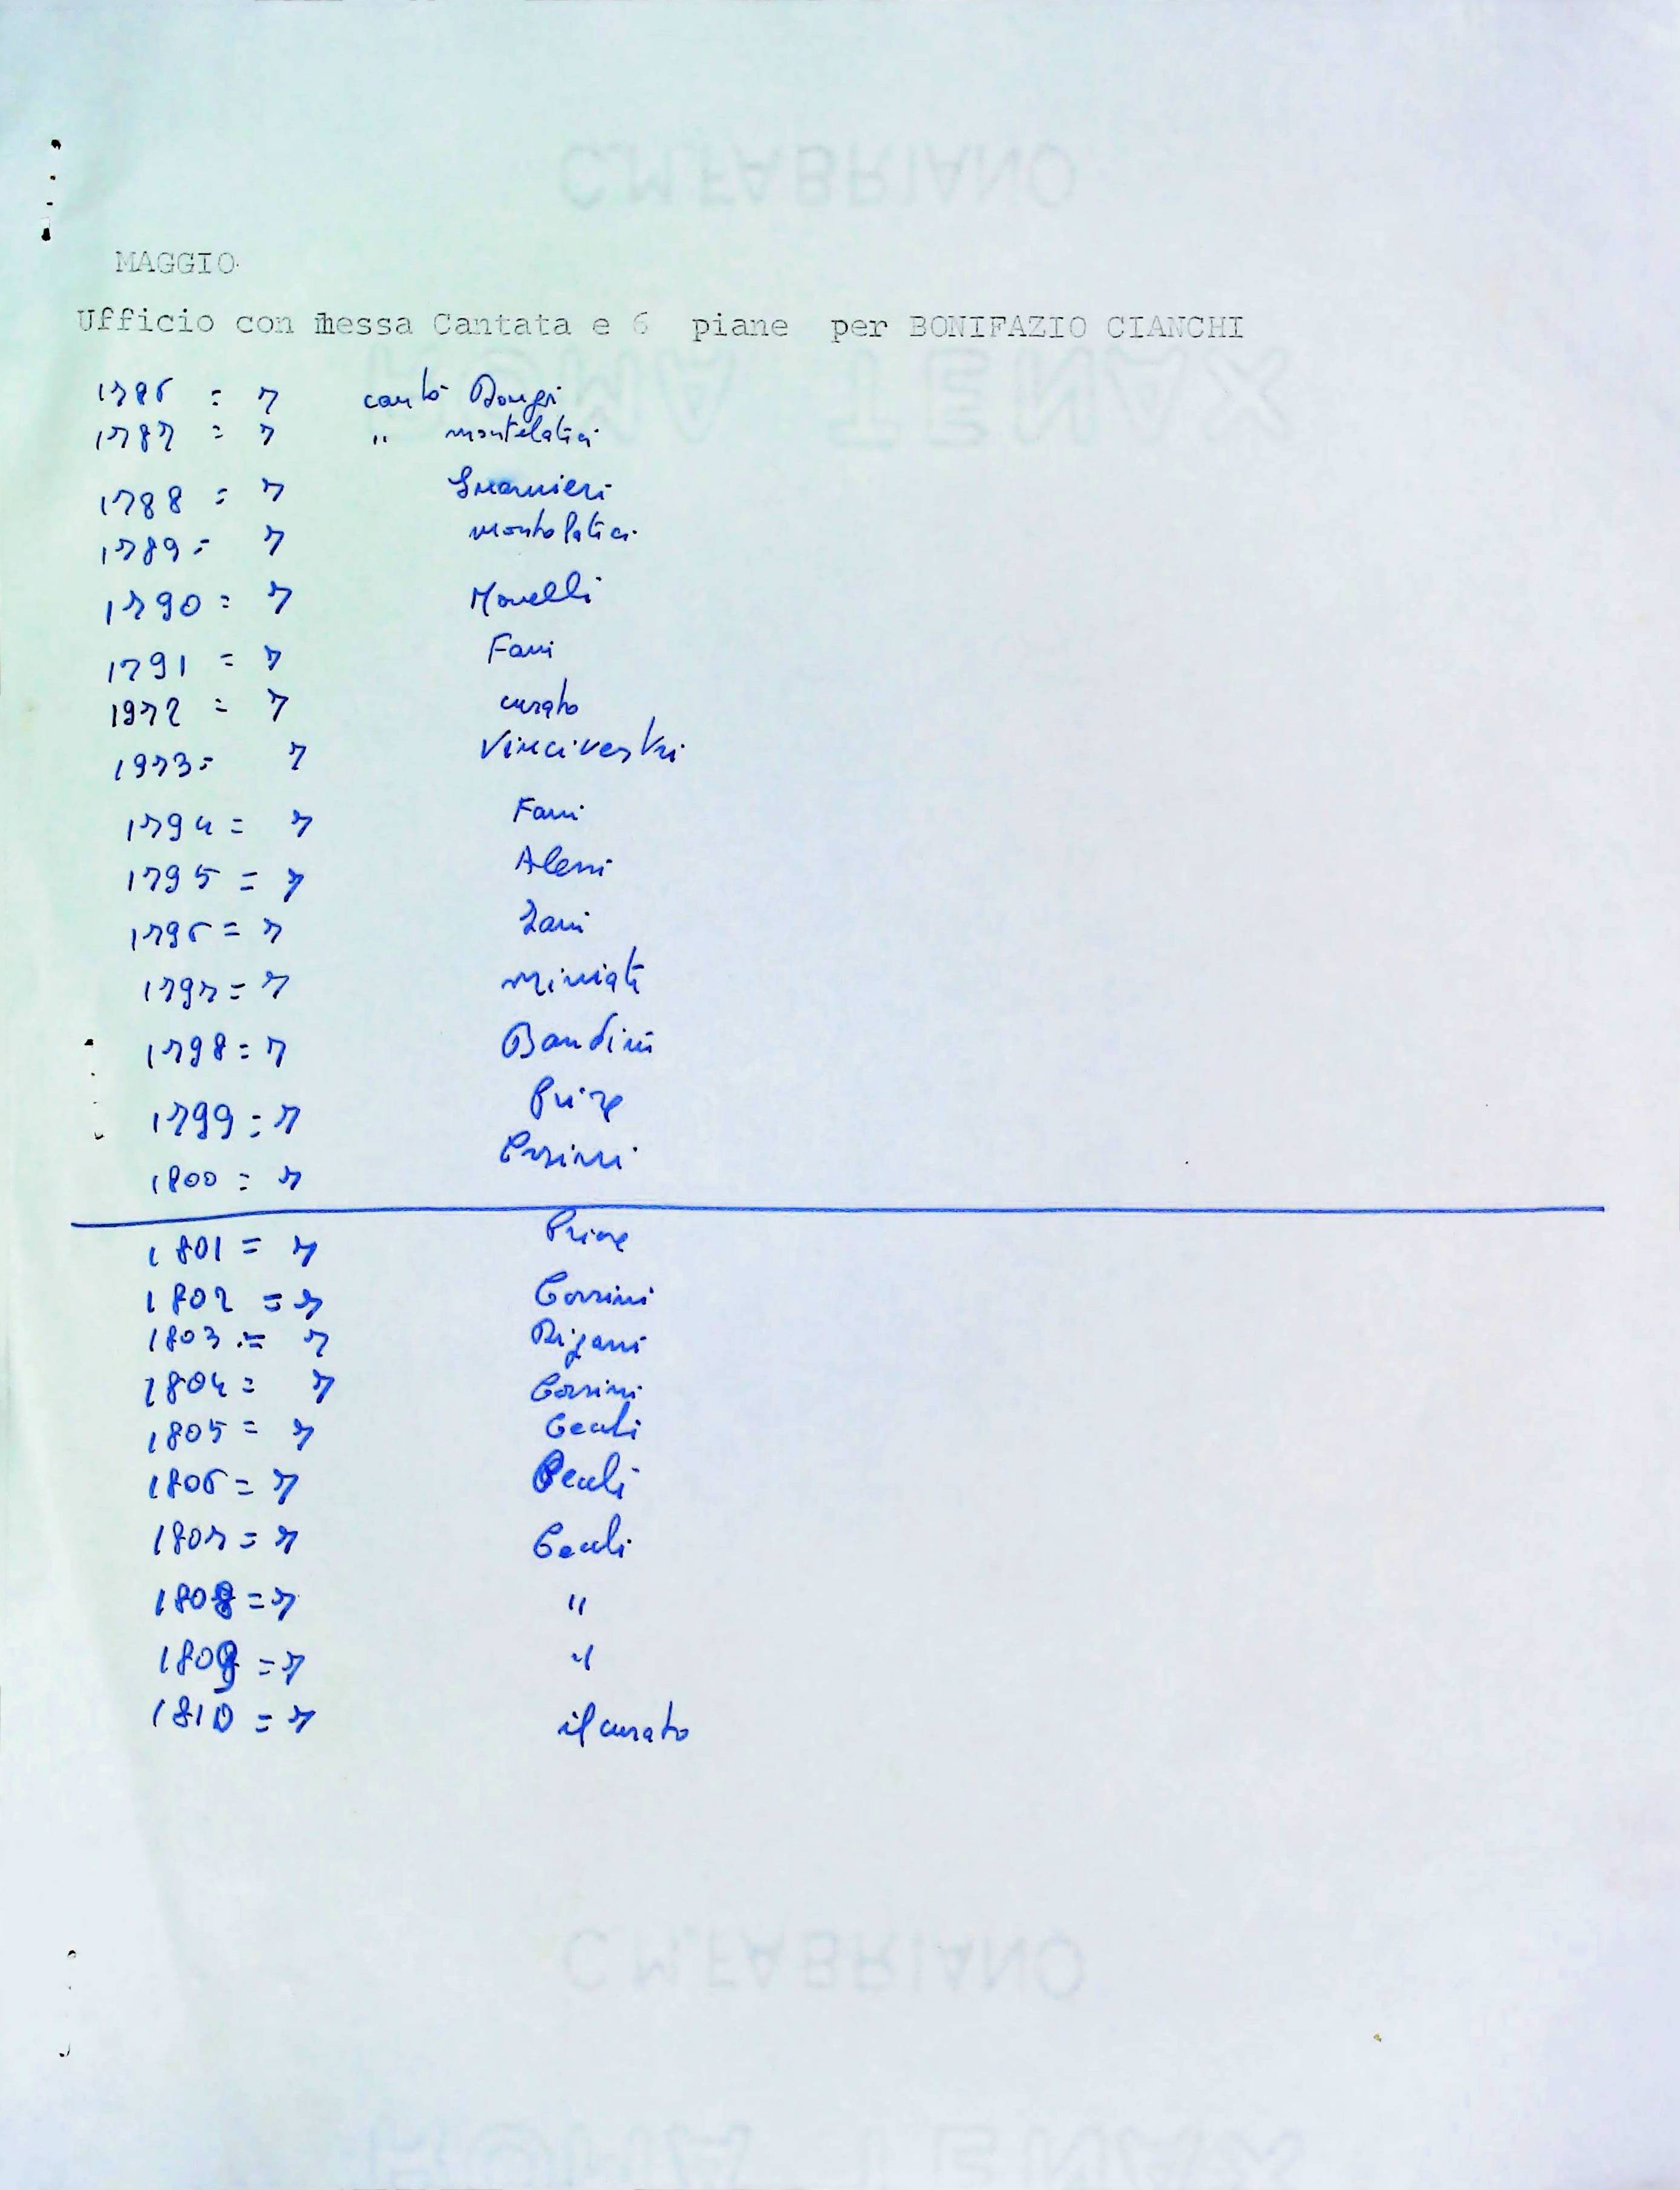 MAGGIO
Ufficio con messa Cantata e 6 piane per BONIFAZIO CIANCHI
1786 = 7 cantò Dongi
1787 = 7 " montelatici
1788 = 7 Guarnieri
1789 = 7 montelatici
1790 = 7 Morelli
1791 = 7 Fani
1972 = 7 curato
1973 = 7 Vincivestri
1794 = 7 Fani
1795 = 7
1796 = 7 Zani
1797 = 7 miniati
1798 = 7 Bandini
1799 = 7 Priore
1800 = 7 Corsini
1801 = 7 Priore
1802 = 7 Corsini
1803 = 7 Rigani
1804 = 7 Corsini
1805 = 7 Ceuli
1806 = 7 Ceuli
1807 = 7 Ceuli
1808 = 7 "
1809 = 7 "
1810 = 7 il curato
C.M.FABRIANO
ROMA TENAX
C.M.FABRIANO
ROMA TENAX